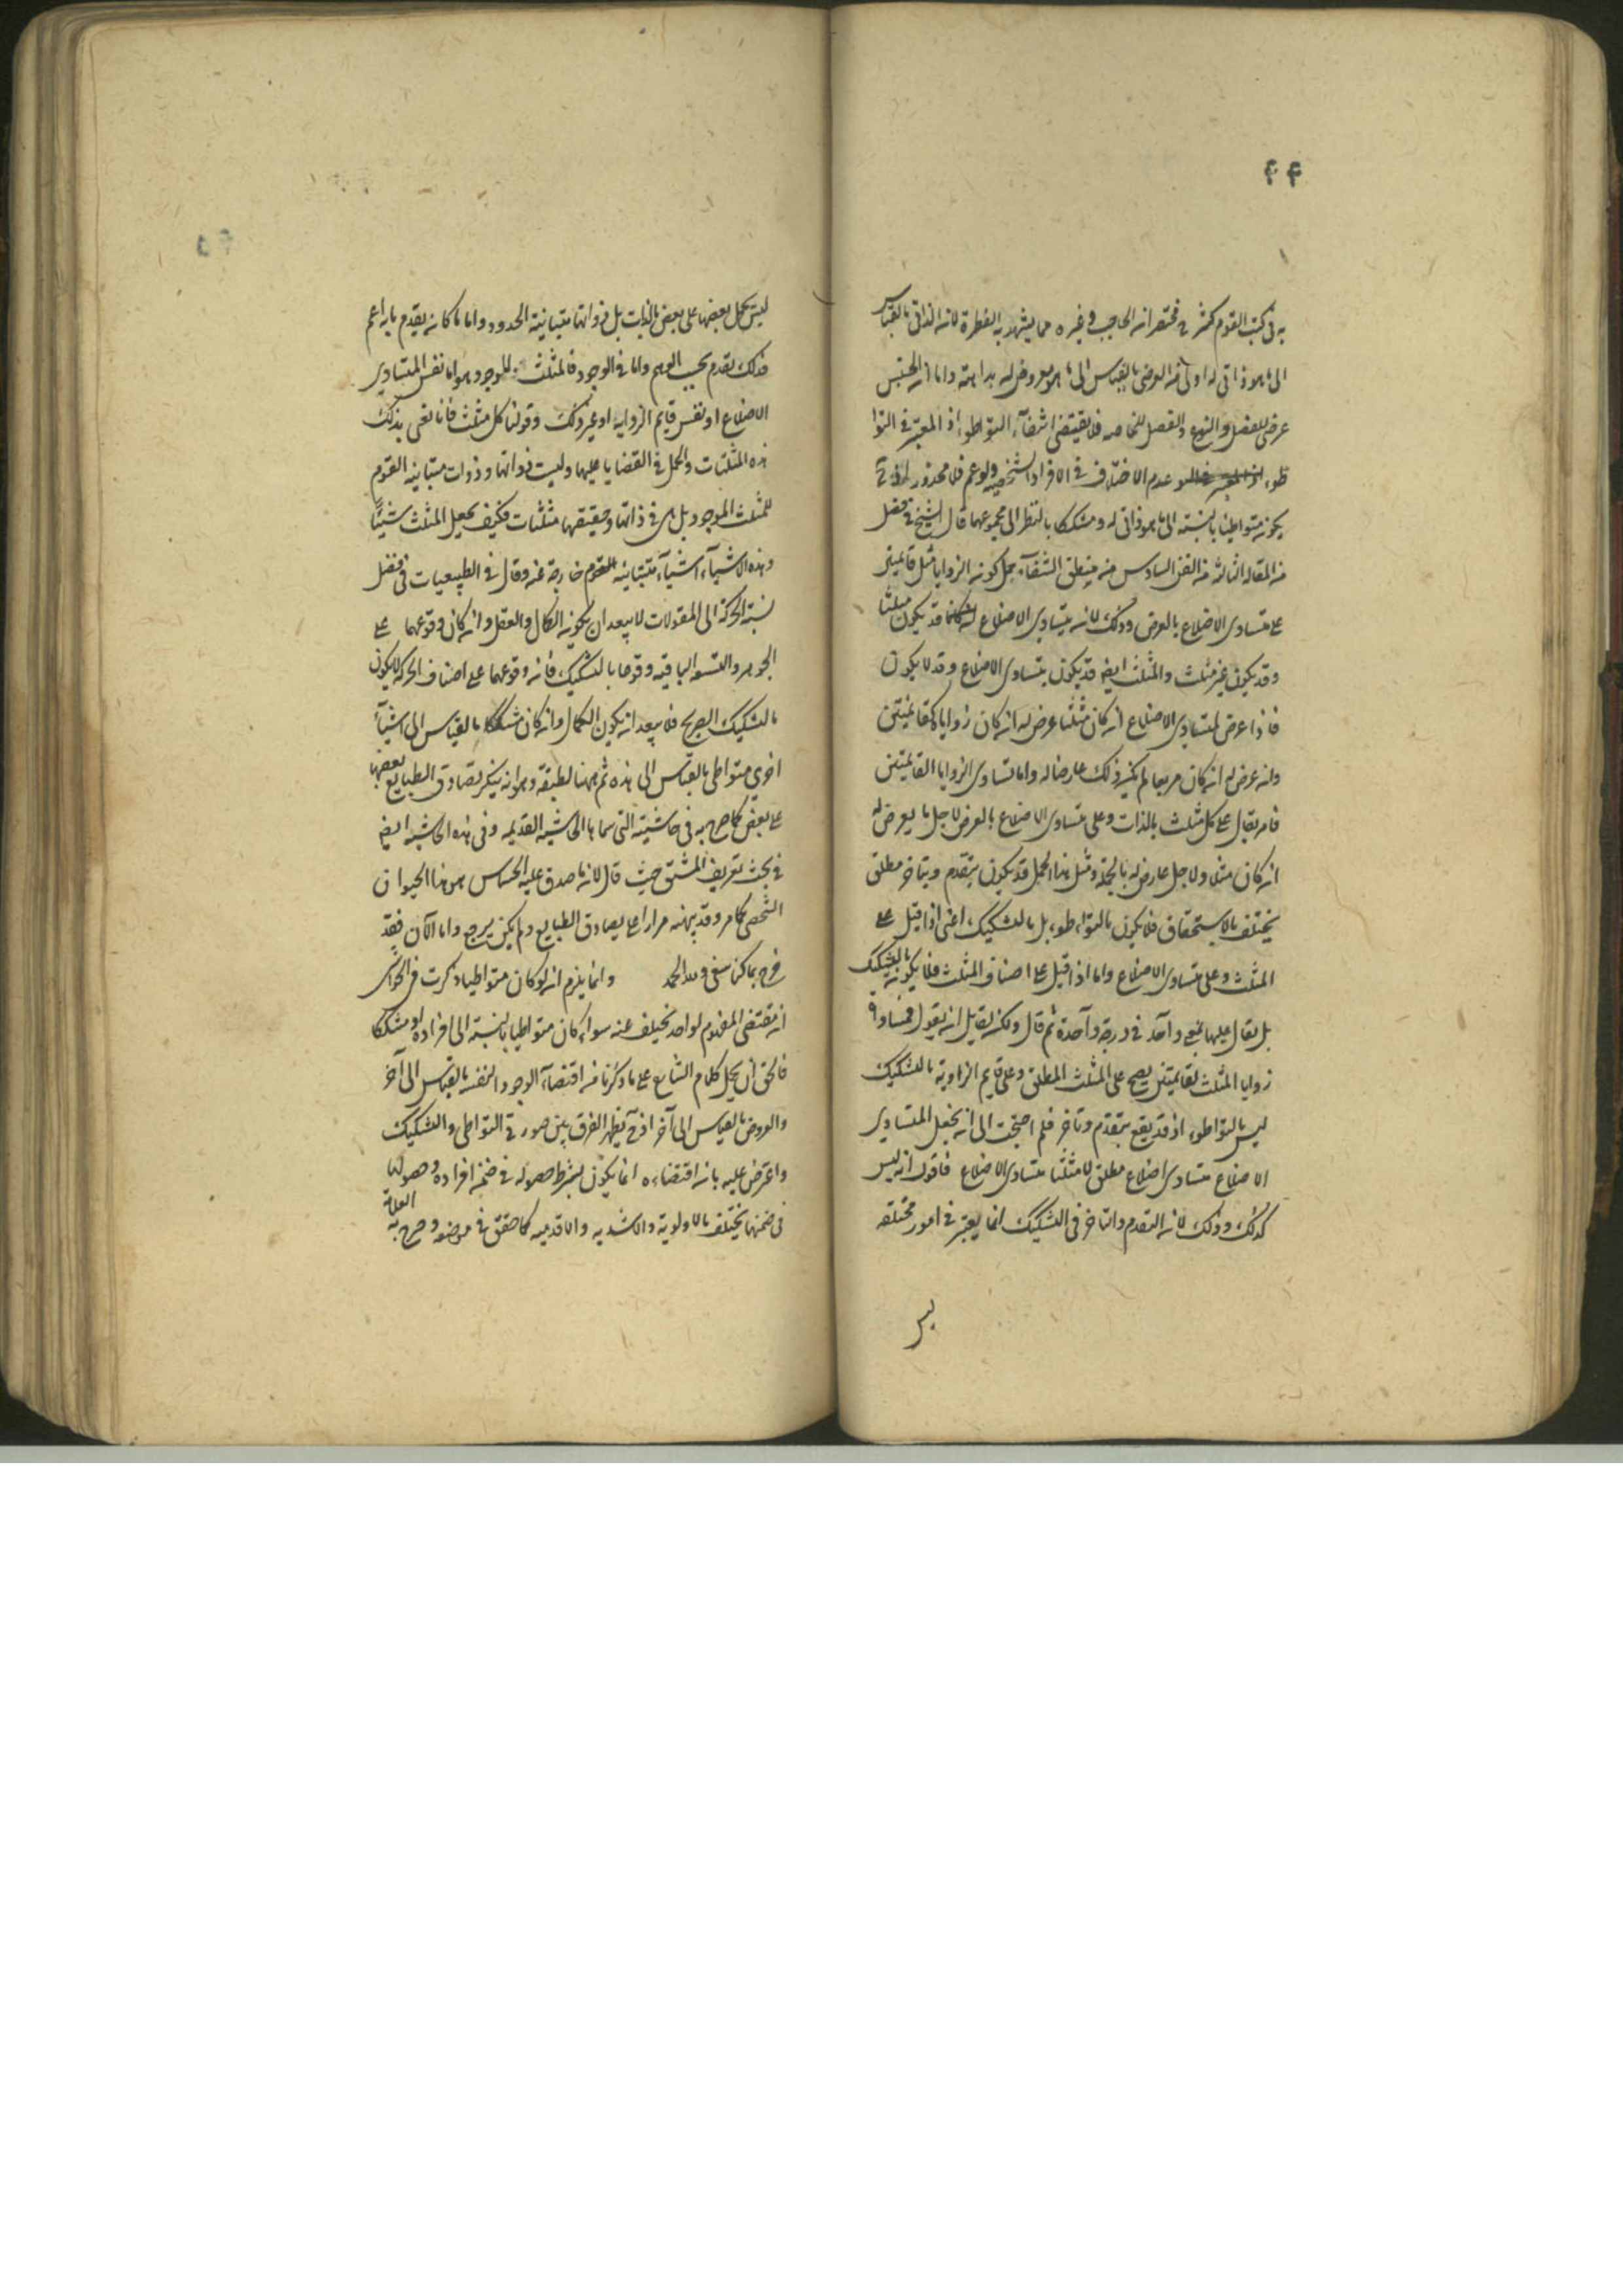 ۴۴
به فى كتب القوم كشرح مختصر ابن الحاجب وغيره مما يشهد به الفطرة لان الذاتى بالقياس
الى ما هو ذاتى له اولى من العرضى بالقياس الى ما هو معروض له بداهة واما ان الجنس
عرضى للفصل والنوع والفصل للخاصه فلا يقتضى انتفاء التواطوء اذ المعتبر فى التوا
طوء عدم الاختلاف فى الافراد الشخصيه ولو عم فلا محذور اذ ح
يكون متواطيا بالنسبة الى ما هو ذاتى له ومشككا بالنظر الى مجموعهما قال الشيخ فى فصل
من المقاله الثالثه من الفن السادس من منطق الشفاء حمل كون الزوايا مثل قائمتين
على متساوى الاضلاع بالعرض وذلك لان متساوى الاضلاع قد يكون مثلثا
وقد يكون غير مثلث والمثلث ايضا قد يكون متساوى الاضلاع وقد لا يكون
فاذا عرض لمتساوى الاضلاع ان كان مثلثا عرض له ان كان زواياه كقائمتين
وان عرض له ان كان مربعا لم يكن ذلك عارضا له واما تساوى الزوايا القائمتين
فامر يقال على كل مثلث بالذات وعلى متساوى الاضلاع بالعرض لاجل ما يعرض له
ان كان مثلثا ولاجل عارض له بالجملة ومثل هذا الحمل قد يكون بتقدم وبتاخر مطلق
يختلف بالاستحقاق فلا يكون بالتواطوء بل بالتشكيك اعنى اذا قيل على
المثلث وعلى متساوى الاضلاع واما اذا قيل على اصناف المثلث فلا يكون بالتشكيك
بل يقال عليها بمعنى واحد فى درجة واحدة ثم قال ولكن لقايل ان يقول فمساواة
زوايا المثلث لقائمتين يصح على المثلث المطلق وعلى قايم الزاوية بالتشكيك
ليس بالتواطوء اذ قد يقع بتقدم وتاخر فلم احتجت الى ان يجعل المتساوى
الاضلاع متساوى اضلاع مطلق لا مثلثا متساوى الاضلاع فاقول انه ليس
كذلك وذلك لان التقدم والتاخر فى التشكيك انما يعتبر فى امور مختلفه
ليس
۴۵
ليس يحمل بعضها على بعض بالذات بل ذواتها متباينة الحدود واما ما كان يقدم بانه اعم
فذلك تقدم بحسب الوهم واما فى الوجود فالمثلث الموجود هو اما نفس المتساوى
الاضلاع او نفس قايم الزاويه او غير ذلك وقولنا كل مثلث فانا نعنى بذلك
هذه المثلثات والحمل فى القضايا عليها وليست ذواتها وذوات متباينه القوم
للمثلث الموجود بل هى فى ذاتها وحقيقتها مثلثات فكيف يجعل المثلث شيئا
وهذه الاشياء اشياء متباينه القوم خارجة عنه وقال فى الطبيعيات فى فصل
نسبة الحركة الى المقولات لا يبعد ان يكون الكمال والفعل وان كان وقوعهما على
الجوهر والتسعه الباقيه وقوعا بالتشكيك فان وقوعهما على اصناف الحركه لا يكون
بالتشكيك الصريح فلا يبعد ان يكون الكمال وان كان مشككا بالقياس الى اشياء
اخرى متواطى بالقياس الى هذه ثم ههنا لطيفة وهو انه ينكر تصادق الطبايع بعضها
على بعض كما صرح به فى حاشيته التى سماها الحاشيه القديمه وفى هذه الحاشيه ايضا
فى بحث تعريف المشتق حيث قال لان ما صدق عليه الحساس هو هذا الحيوان
الشخصى كما مر وقد نبهته مرارا على تصادق الطبايع ولم يكن يرجع واما الآن فقد
صرح بما كنا نبغى ولله الحمد وانما يلزم ان لو كان متواطيا وذكرت فى الحواشى
ان مقتضى المفهوم الواحد لا يختلف عنه سواء كان متواطيا بالنسبة الى افراده او مشككا
فالحق ان يحمل كلام الشارح على ما ذكرنا من اقتضاء الوجود لنفسه بالقياس الى آخر
والعروض بالقياس الى آخر اذ ح يظهر الفرق بين صورتى التواطى والتشكيك
واعترض عليه بان اقتضاءه انما يكون بشرط حصوله فى ضمن افراده وحصولها
فى ضمنها يختلف بالاولوية والاشديه والاقدميه كما حقق فى موضعه وصرح به العلامة